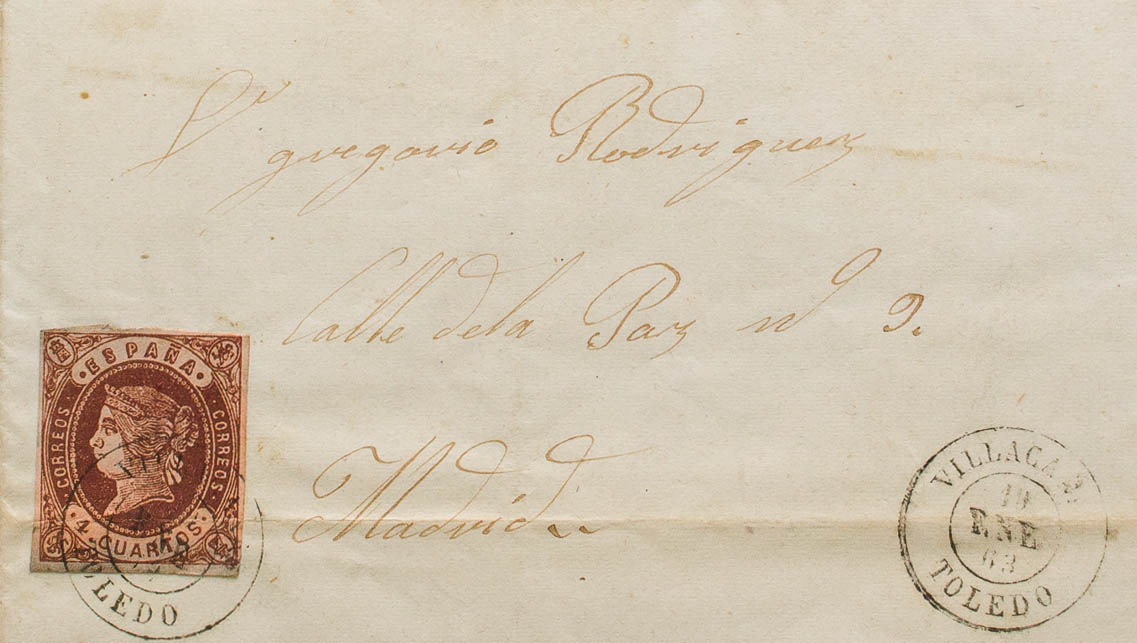 Sr gregorio Rodriguez
Calle dela Paz nº 9.
Madrid
ESPAÑA
CORREOS
CORREOS
4 CUARTOS
TOLEDO
VILLACA
19
ENE
63
TOLEDO